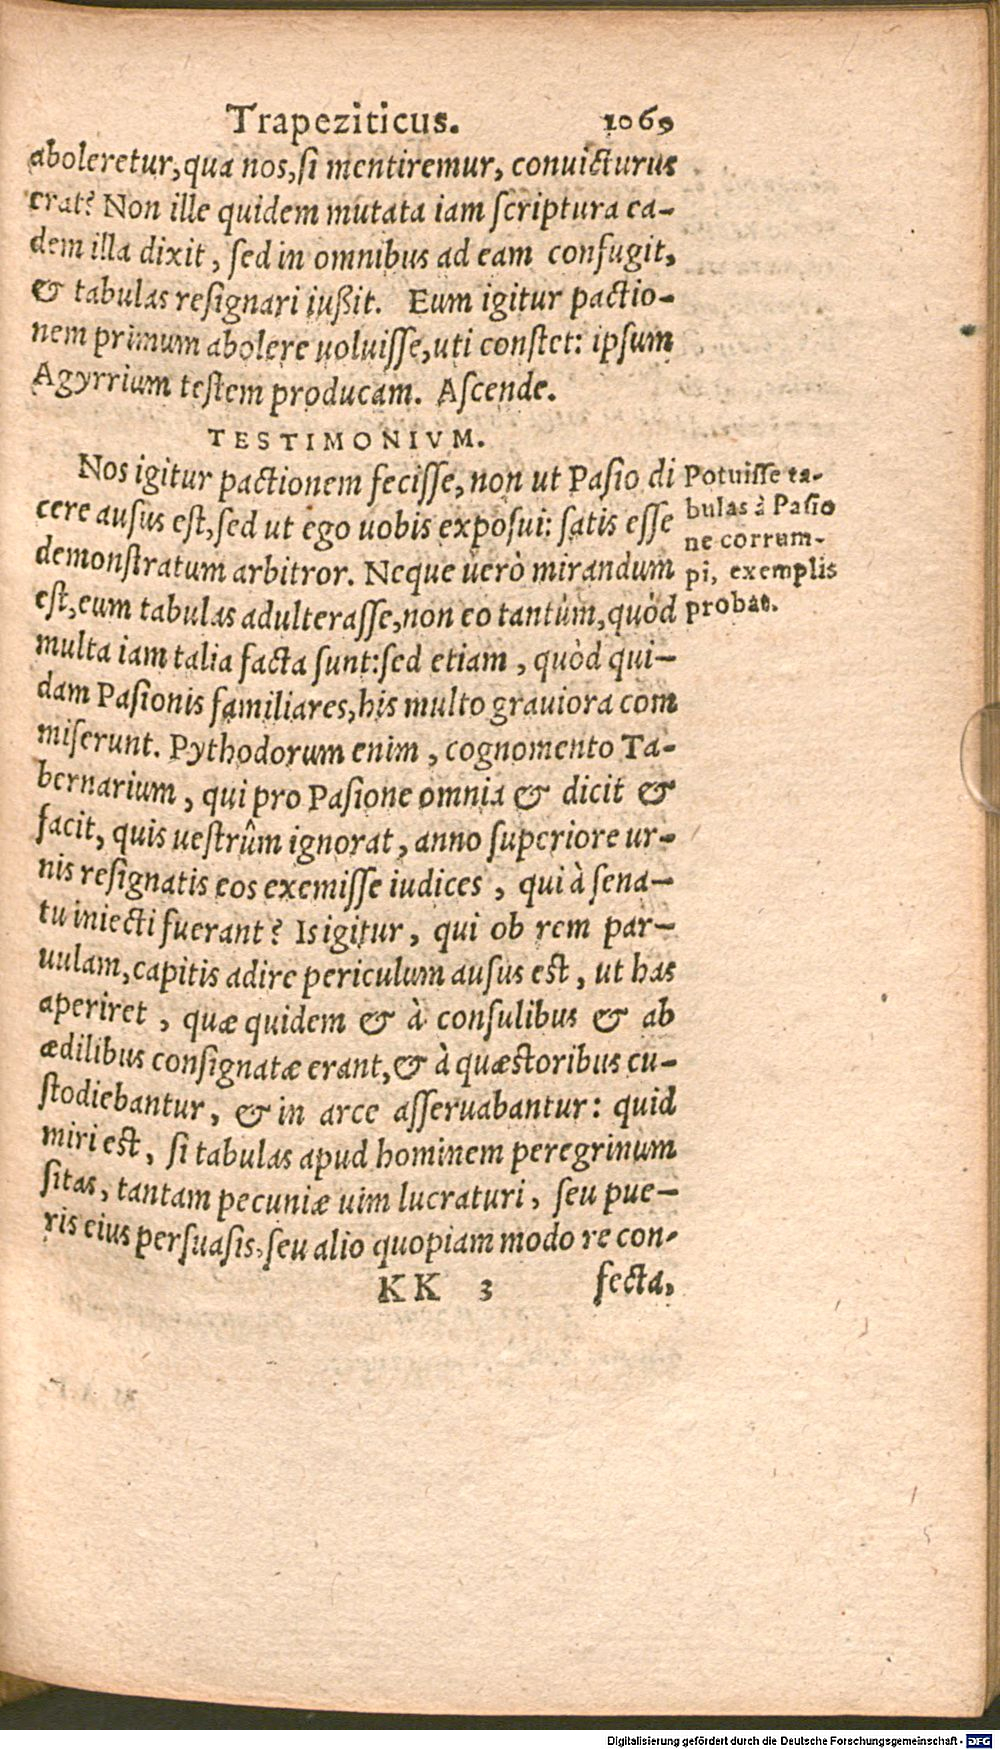 Trapeziticus. 1069
aboleretur, qua nos, si mentiremur, conuicturus
erat? Non ille quidem mutata iam scriptura ea-
dem illa dixit, sed in omnibus ad eam confugit,
& tabulas resignari iußit. Eum igitur pactio-
nem primum abolere uoluisse, uti constet: ipsum
Agyrrium testem producam. Ascende.
TESTIMONIVM.
Nos igitur pactionem fecisse, non ut Pasio di
cere ausus est, sed ut ego uobis exposui: satis esse
demonstratum arbitror. Neque uerò mirandum
est, eum tabulas adulterasse, non eo tantùm, quòd
multa iam talia facta sunt: sed etiam, quòd qui-
dam Pasionis familiares, his multo grauiora com
miserunt. Pythodorum enim, cognomento Ta-
bernarium, qui pro Pasione omnia & dicit &
facit, quis uestrûm ignorat, anno superiore ur-
nis resignatis eos exemisse iudices, qui à sena-
tu iniecti fuerant? Is igitur, qui ob rem par-
uulam, capitis adire periculum ausus est, ut has
aperiret, quæ quidem & à consulibus & ab
ædilibus consignatæ erant, & à quæstoribus cu-
stodiebantur, & in arce asseruabantur: quid
miri est, si tabulas apud hominem peregrinum
sitas, tantam pecuniæ uim lucraturi, seu pue-
ris eius persuasis, seu alio quopiam modo re con-
KK 3 fecta,
Potuisse ta-
bulas à Pasio
ne corrum-
pi, exemplis
probat.
Digitalisierung gefördert durch die Deutsche Forschungsgemeinschaft - DFG